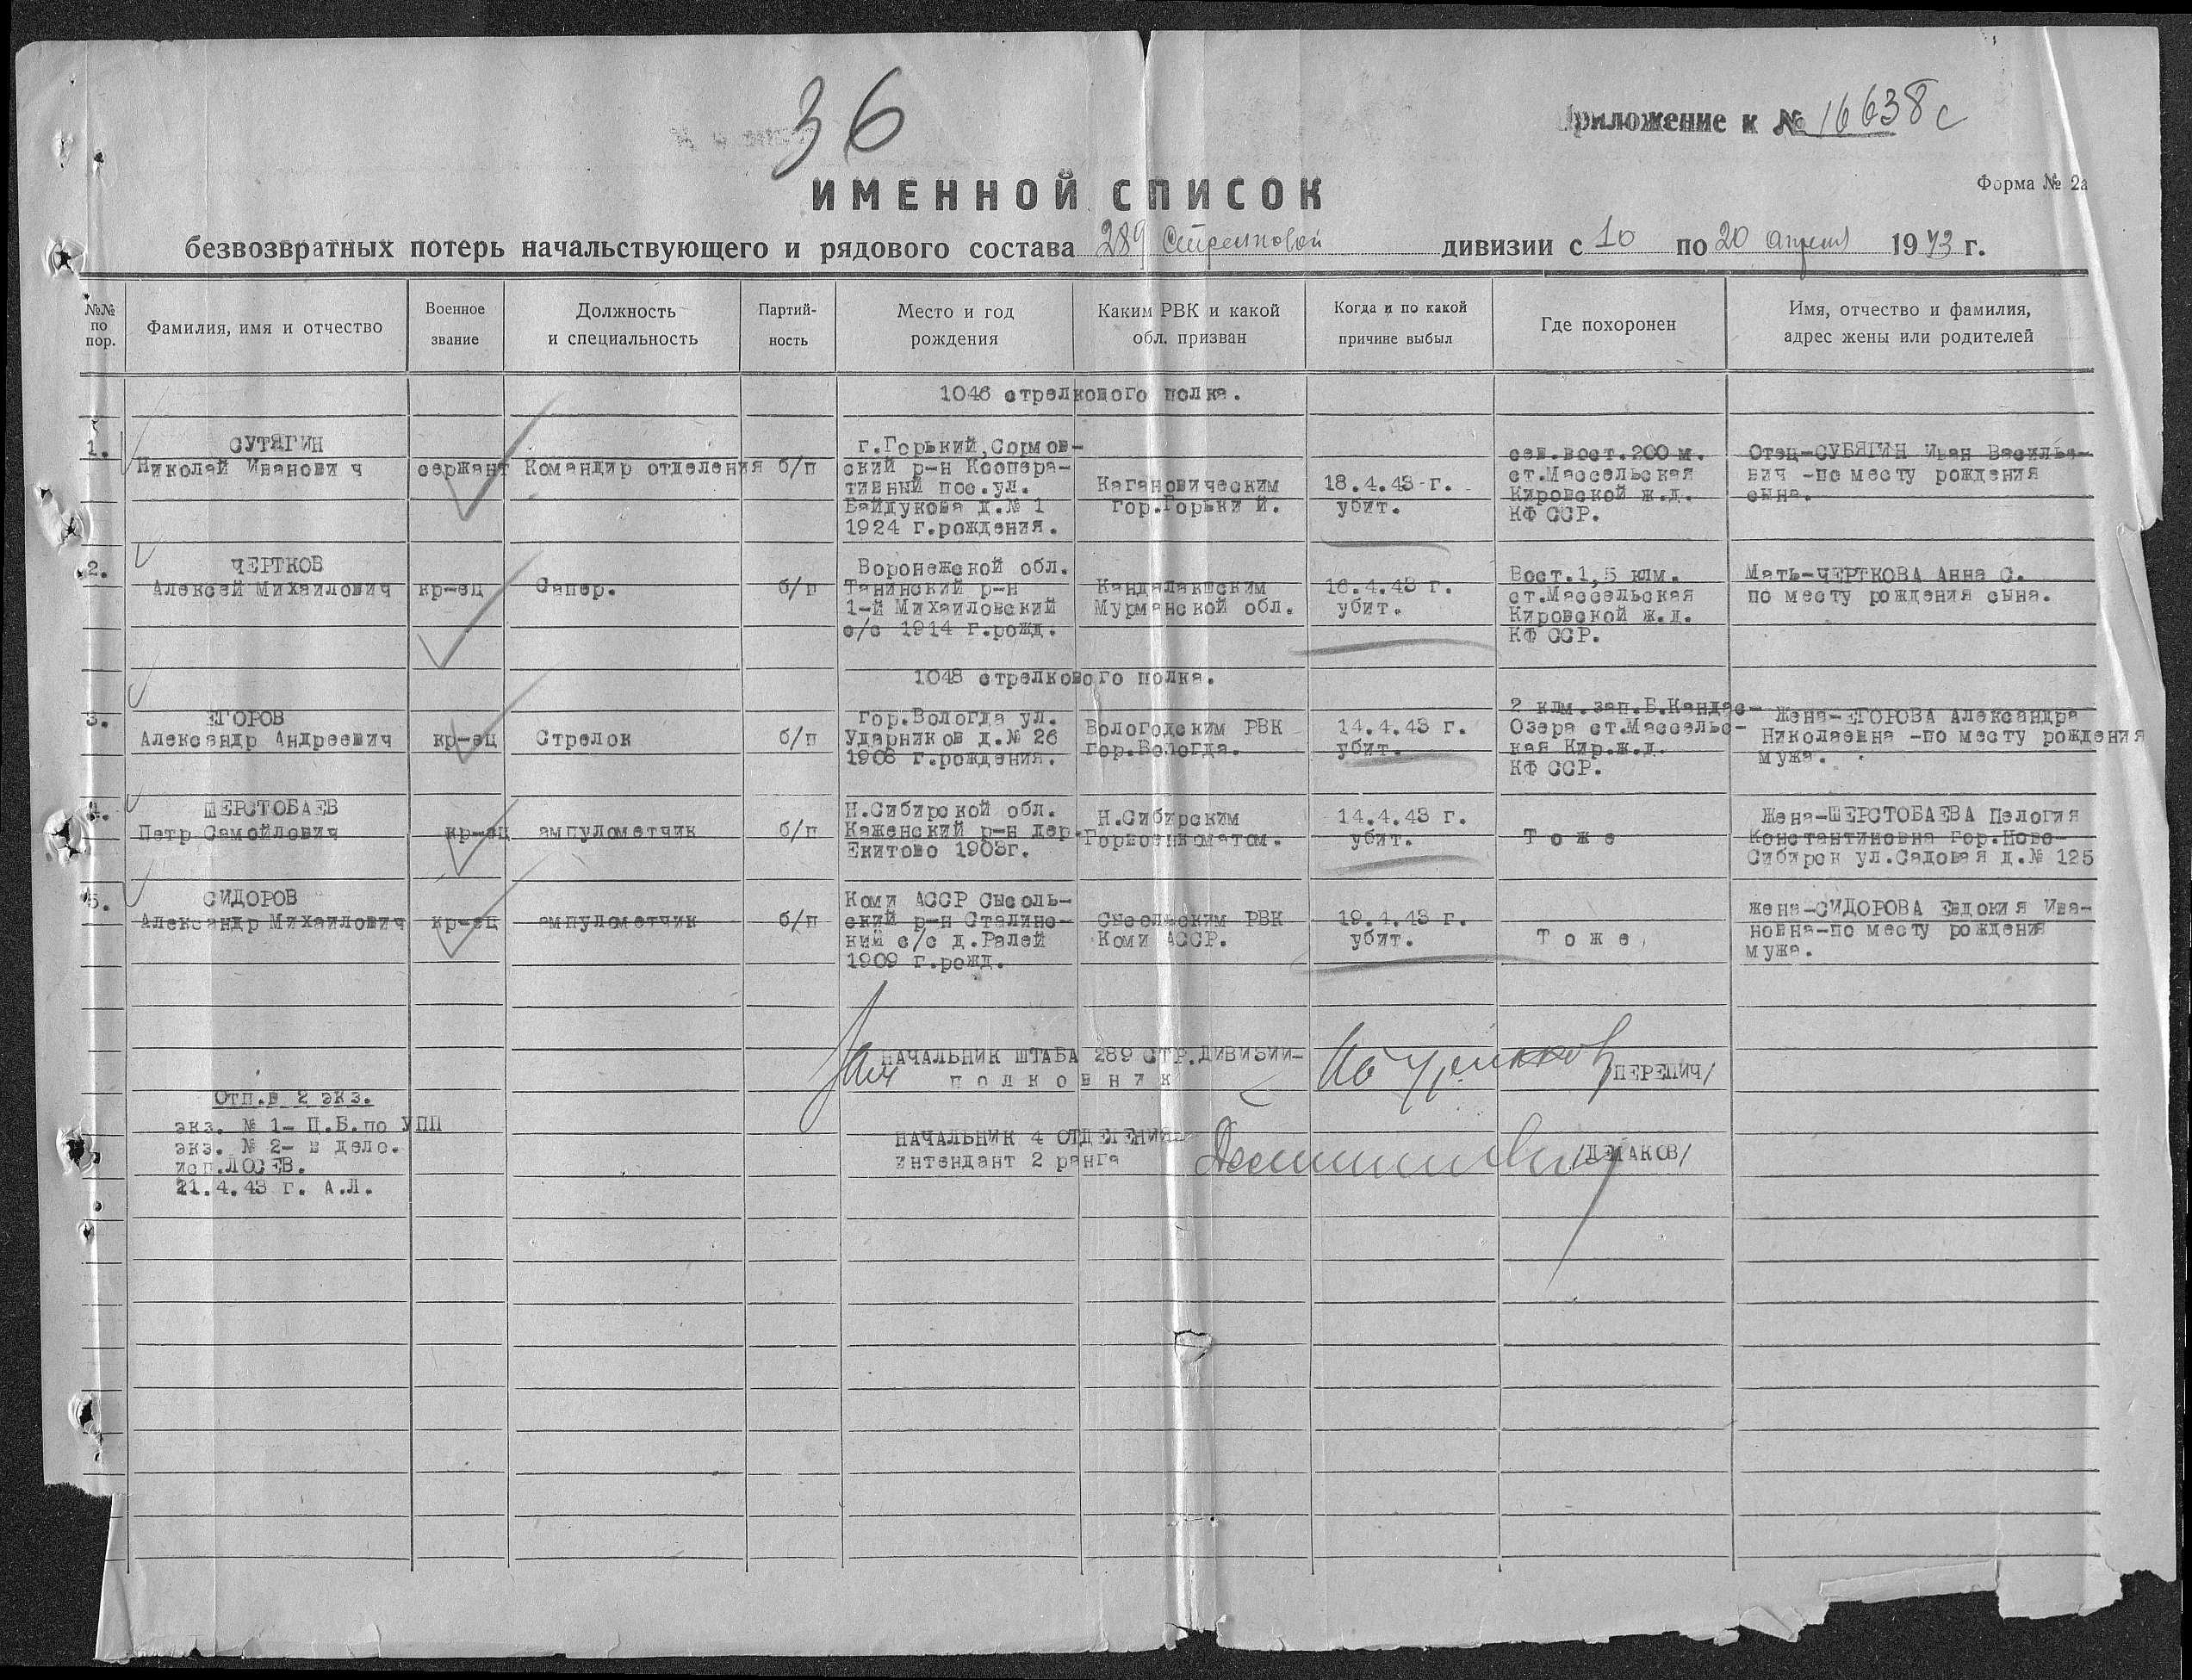 36
Приложение к № 16638с
ИМЕННОЙ СПИСОК
Форма № 2а
безвозвратных потерь начальствующего и рядового состава 289 Стрелковой дивизии с 10 по 20 апреля 1943 г.
№№ по пор.
Фамилия, имя и отчество
Военное звание
Должность и специальность
Партий-ность
Место и год рождения
Каким РВК и какой обл. призван
Когда и по какой причине выбыл
Где похоронен
Имя, отчество и фамилия, адрес жены или родителей
1046 стрелкового полка.
1.
СУТЯГИН
Николай Иванович
сержант
Командир отделения
б/п
г.Горький,Сормов-
ский р-н Коопера-
тивный пос.ул.
Байдукова д.№ 1
1924 г.рождения.
Кагановическим
гор.Горький.
18.4.43 г.
убит.
сев.вост.200 м.
ст.Массельская
Кировской ж.д.
КФ ССР.
Отец-СУБЯГИН Иван Василье-
вич -по месту рождения
сына.
2.
ЧЕРТКОВ
Алексей Михаилович
кр-ец
Сапер.
б/п
Воронежской обл.
Танинский р-н
1-й Михаиловский
с/с 1914 г.рожд.
Кандалакшским
Мурманской обл.
16.4.43 г.
убит.
Вост.1,5 клм.
ст.Массельская
Кировской ж.д.
КФ ССР.
Мать-ЧЕРТКОВА Анна С.
по месту рождения сына.
1048 стрелкового полка.
3.
ЕГОРОВ
Александр Андреевич
кр-ец
Стрелок
б/п
гор.Вологда ул.
Ударников д.№ 26
1908 г.рождения.
Вологодским РВК
гор.Вологда.
14.4.43 г.
убит.
2 клм.зап.Б.Кандас-
Озера ст.Массельс-
кая Кир.ж.д.
КФ ССР.
Жена-ЕГОРОВА Александра
Николаевна -по месту рождения
мужа.
4.
ШЕРСТОБАЕВ
Петр Самойлович
кр-ец
ампулометчик
б/п
Н.Сибирской обл.
Каженский р-н дер.
Екитово 1903г.
Н.Сибирским
Горвоенкоматом.
14.4.43 г.
убит.
Тоже
Жена-ШЕРСТОБАЕВА Пелогия
Константиновна гор.Ново-
Сибирск ул.Садовая д.№ 125
5.
СИДОРОВ
Александр Михаилович
кр-ец
ампулометчик
б/п
Коми АССР Сысоль-
ский р-н Сталинс-
кий с/с д.Ралей
1909 г.рожд.
Сысольским РВК
Коми АССР.
19.4.43 г.
убит.
Тоже,
жена-СИДОРОВА Евдокия Ива-
новна-по месту рождения
мужа.
НАЧАЛЬНИК ШТАБА 289 СТР.ДИВИЗИИ-
полковник
/ПЕРЕПИЧ/
НАЧАЛЬНИК 4 ОТДЕЛЕНИЯ
интендант 2 ранга
/ДЕМАКОВ/
Отп.в 2 экз.
экз. № 1- П.Б.по УПП
экз. № 2- в дело.
исп.ЛОСЕВ.
21.4.43 г. А.Л.